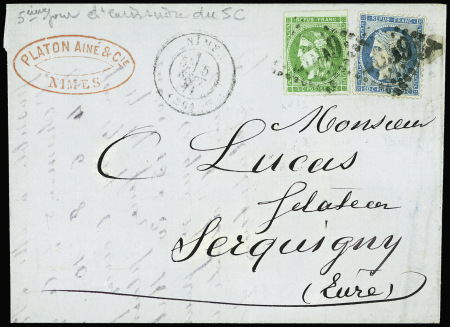 5ème jour d'émission du 5C
PLATON AINÉ & CIE
NIMES
NIMES
5
REPUB FRANC
REPUB FRANC
Monsieur
C Lucas
filateur
Serquigny
(Eure)